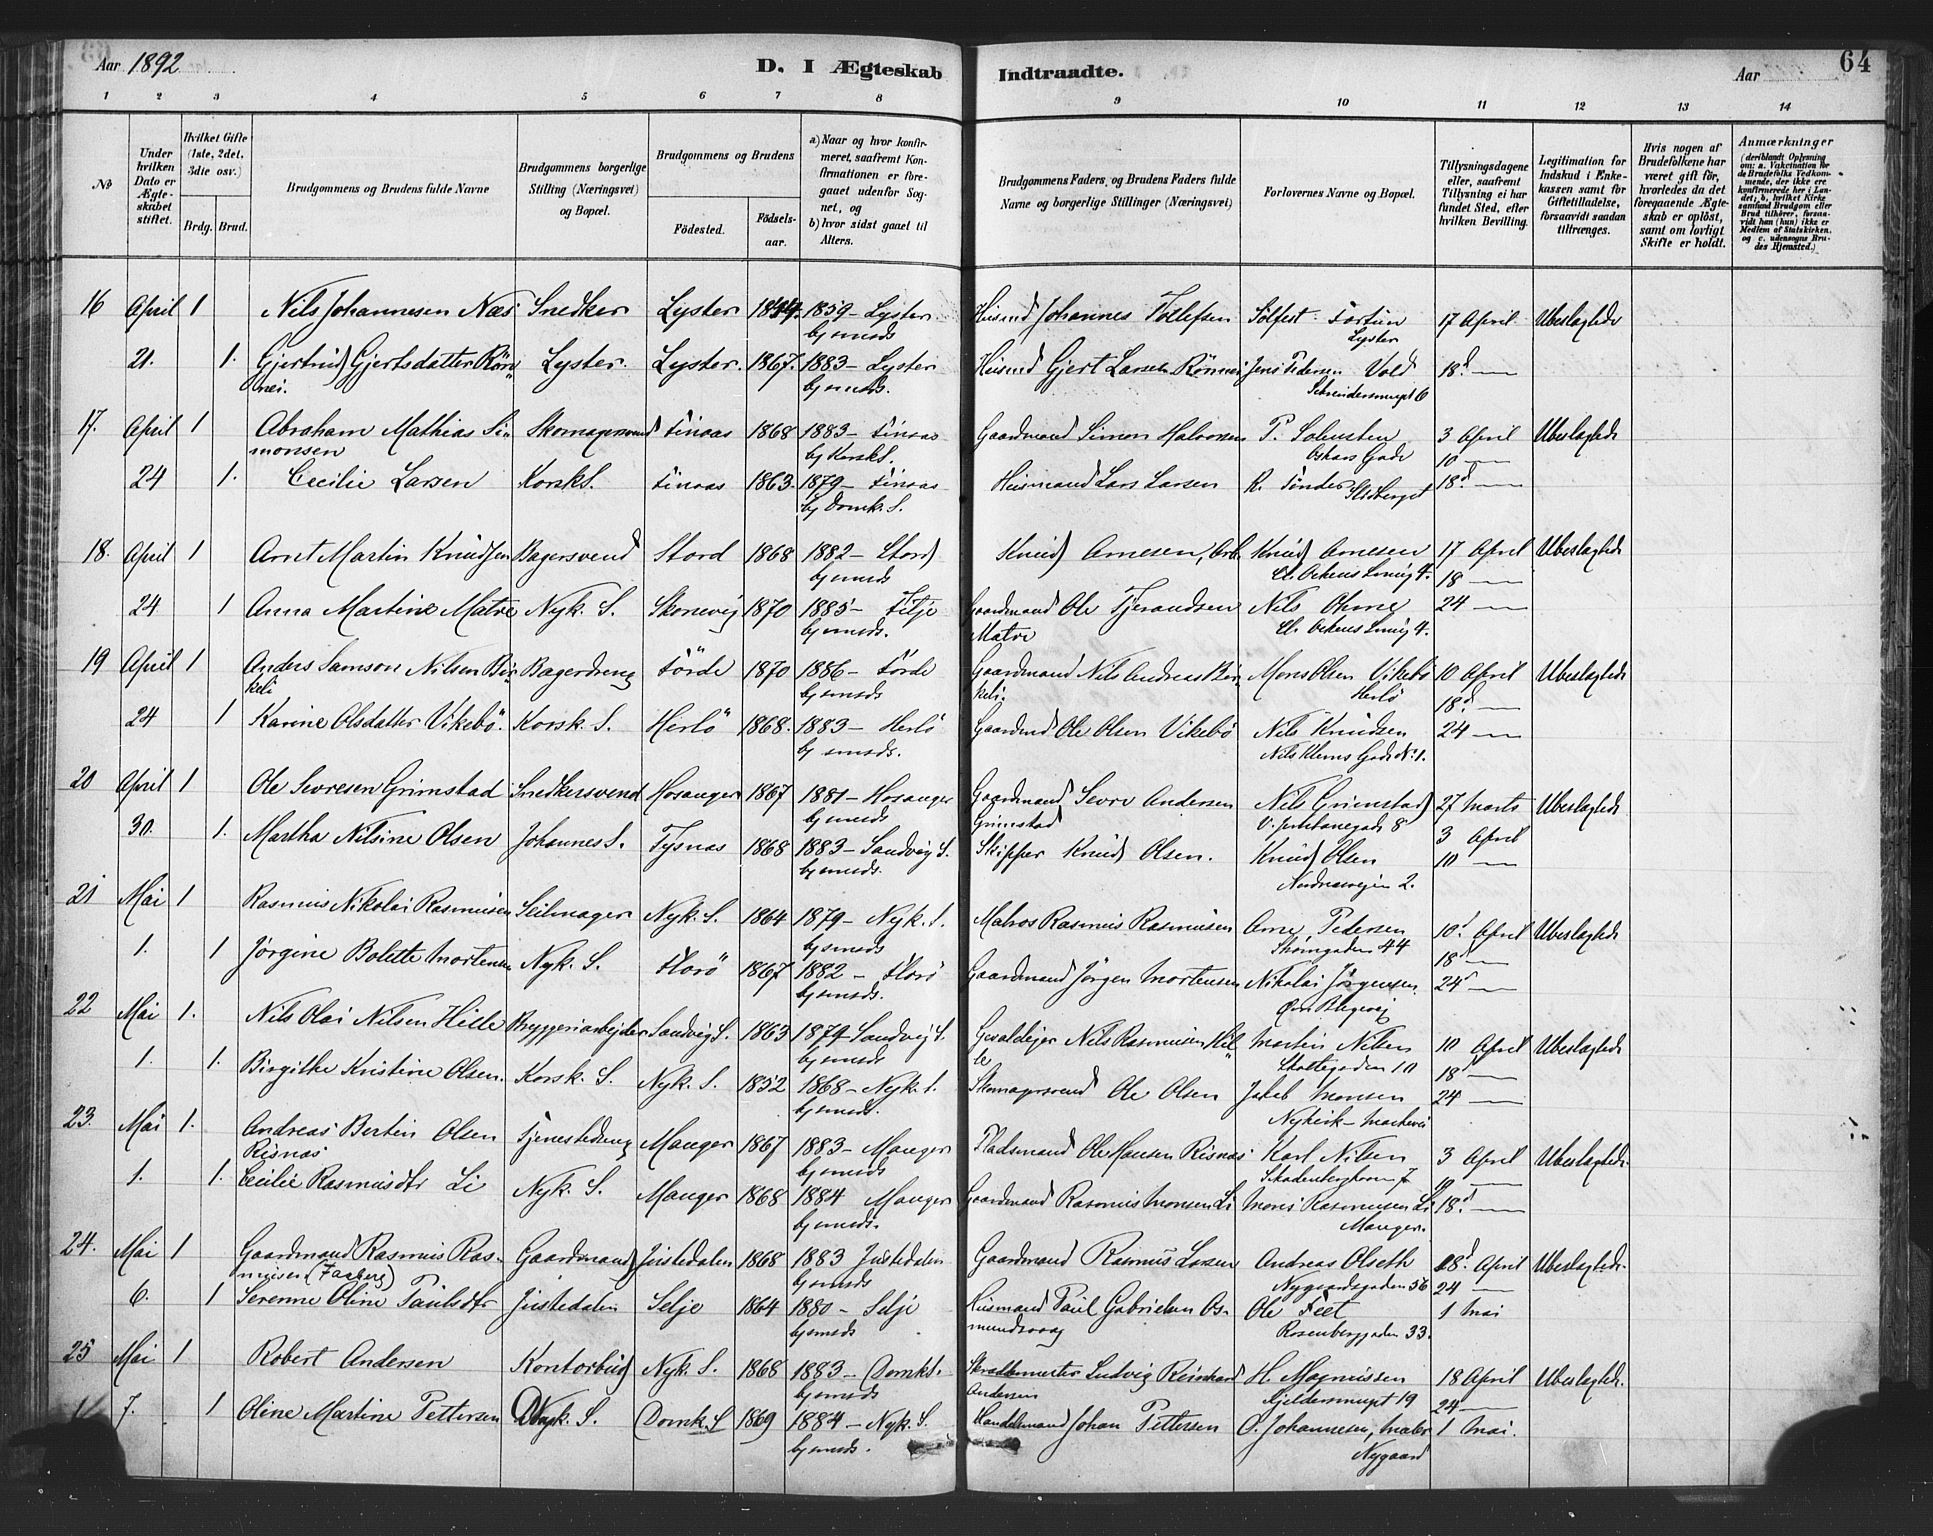 Aar 1892
D. I Ægteskab Indtraadte.
Aar
64
1 2 3 4 5 6 7 8 9 10 11 12 13 14
No
Under hvilken Dato er Ægteskabet stiftet.
Hvilket Gifte (1ste, 2det, 3die osv.)
Brdg. Brud.
Brudgommens og Brudens fulde Navne
Brudgommens borgerlige Stilling (Næringsvei) og Bopæl.
Brudgommens og Brudens
Fødested.
Fødselsaar.
a) Naar og hvor konfirmeret, saafremt Konfirmationen er foregaaet udenfor Sognet, og
b) hvor sidst gaaet til Alters.
Brudgommens Faders og Brudens Faders fulde Navne og borgerlige Stillinger (Næringsvei)
Forlovernes Navne og Bopæl.
Tillysningsdagene eller, saafremt Tillysning ei har fundet Sted, efter hvilken Bevilling.
Legitimation for Indskud i Enkekassen samt for Giftetilladelse, forsaavidt saadan tiltrænges.
Hvis nogen af Brudefolkene har været gift før, hvorledes da det foregaaende Ægteskab er opløst, samt om lovligt Skifte er holdt.
Anmærkninger
(deriblandt Oplysning om: a. Vakcination for de Brudefolks Vedkommende, der ikke ere konfirmerede her i Landet; b. hvilket Kirkesamfund Brudgom eller Brud tilhører, forsaavidt han (hun) ikke er Medlem af Statskirken, og c. udensogns Brudes Hjemsted.)
16 April 1 Nils Johannesen Næs Snedker Lyster 1844 1859 - Lyster Husmd Johannes Tollefsen Solfest Fortun 17 April Ubeslagtede
bysmeds Lyster
21. 1. Gjertrud Gjertsdatter Røn- Lyster. Lyster. 1867. 1883 - Lyster Husmd Gjert Larsen Rønnei Jens Pedersen Vold 18d
nei. bysmeds. 6
17. April 1 Abraham Mathias Si- Skomagersvend Finaas 1868 1883 - Finaas Gaardmand Simon Halvorsen P. Solusten 3 April Ubeslagtede
monsen by Korsk S. Oskars Gade 10
24 1. Cecilie Larsen Korsk S. Finaas 1863. 1879 - Finaas Husmand Lars Larsen R. Tønder 18d
by Domk. S.
18. April 1 Arnt Martin Knudsen Bagersvend Stord 1868 1882 - Stord Knud Arnesen, Arb. Knud Arnesen 17 April Ubeslagtede
bysmeds 18
24 1 Anna Martine Matre Nyk. S. Skonevig 1870 1885 - Fitje Gaardmand Ole Tjerandsen Nils 24
bysmeds. Matre
19 April 1 Anders Samson Nilsen Bir- Bagerdreng Førde 1870 1886 - Førde Gaardmand Nils Andreas Bir- Mons Olsen Vikebø 10 April Ubeslagtede
keli bysmeds keli. Herlø 18d
24 1 Karine Olsdatter Vikebø. Korsk. S. Herlø 1868. 1883 - Herlø Gaardmd Ole Olsen Vikebø Nils Knudsen 24
bysmeds. Nils Klims Gade No 1.
20 April 1 Ole Sevresen Grimstad Snedkersvend Hosanger 1867 1881 - Hosanger Gaardmand Sevre Andersen Nils Grimstad 27 Marts Ubeslagtede
bysmeds Grimstad 8
30. 1. Martha Nilsine Olsen Johannes S. Tysnæs 1868 1883 - Sandvig S. Skipper Knud Olsen. Knud Olsen 3 April
bysmeds. Nordnæsveien 2. 10
21 Mai 1 Rasmus Nikolai Rasmusen Seilmager Nyk. S. 1864 1879 - Nyk. S. Matros Rasmus Rasmusen Arne Pedersen 10d April Ubeslagtede
bysmeds Strømgaden 44 18d
1. 1 Jørgine Bolette Mortensen Nyk. S. Florø 1867 1882 - Florø Gaardmand Jørgen Mortensen Nikolai Jørgensen 24d
bysmeds.
22 Mai 1. Nils Olai Nilsen Hille Bryggeriarbejder Sandvig S. 1863 1879 Sandvig S. Gevaldiger Nils Rasmusen Hil- Martin Nilsen 10 April Ubeslagtede
bysmeds le Skottegaden 10 18d
1. 1. Birgitte Kristine Olsen. Korsk. S. Nyk. S. 1852 1868 - Nyk. S. Skomagersvend Ole Olsen Jakob Monsen 24
bysmeds.
23. Mai 1. Andreas Bertin Olsen Tjenestedreng Manger 1867 1883 - Manger Pladsmand Ole Hansen Risnæs Karl Nilsen 3 April Ubeslagtede.
Risnæs bysmeds 7 10
1. 1. Cecilie Rasmusdtr Li Nyk. S. Manger 1868 1884 Manger Gaardmand Rasmus Monsen Li Mons Rasmusen Li 18d
bysmeds. Manger.
24. Mai 1 Gaardmand Rasmus Ras- Gaardmand Justedalen 1868 1883 Justedalen Gaardmand Rasmus Larsen Andreas Olseth 18d April Ubeslagtede.
musen (Faaberg) bysmeds Nygaardsgaden 56 24
6. 1 Serenne Oline Paulsdtr Justedalen Selje 1864 1880 - Selje Husmand Paul Gabrielsen Os- Ole Feet 1 Mai
bysmeds mundsvaag Rosenberggaden 33.
25 Mai 1 Robert Andersen Kontorbud Nyk. S. 1868 1883 - Domks. Skræddermester Ludvig Reinhard H. Magnussen 18 April Ubeslagtede.
bysmeds Andersen Kjeldersmuget 19 24
7. 1 Oline Martine Pettersen Nyk. S. Domk. S 1869 1884 - Nyk. S. Handelsmand Johan Pettersen O. Johannesen, Maler 1 Mai.
bysmeds. Nygaard